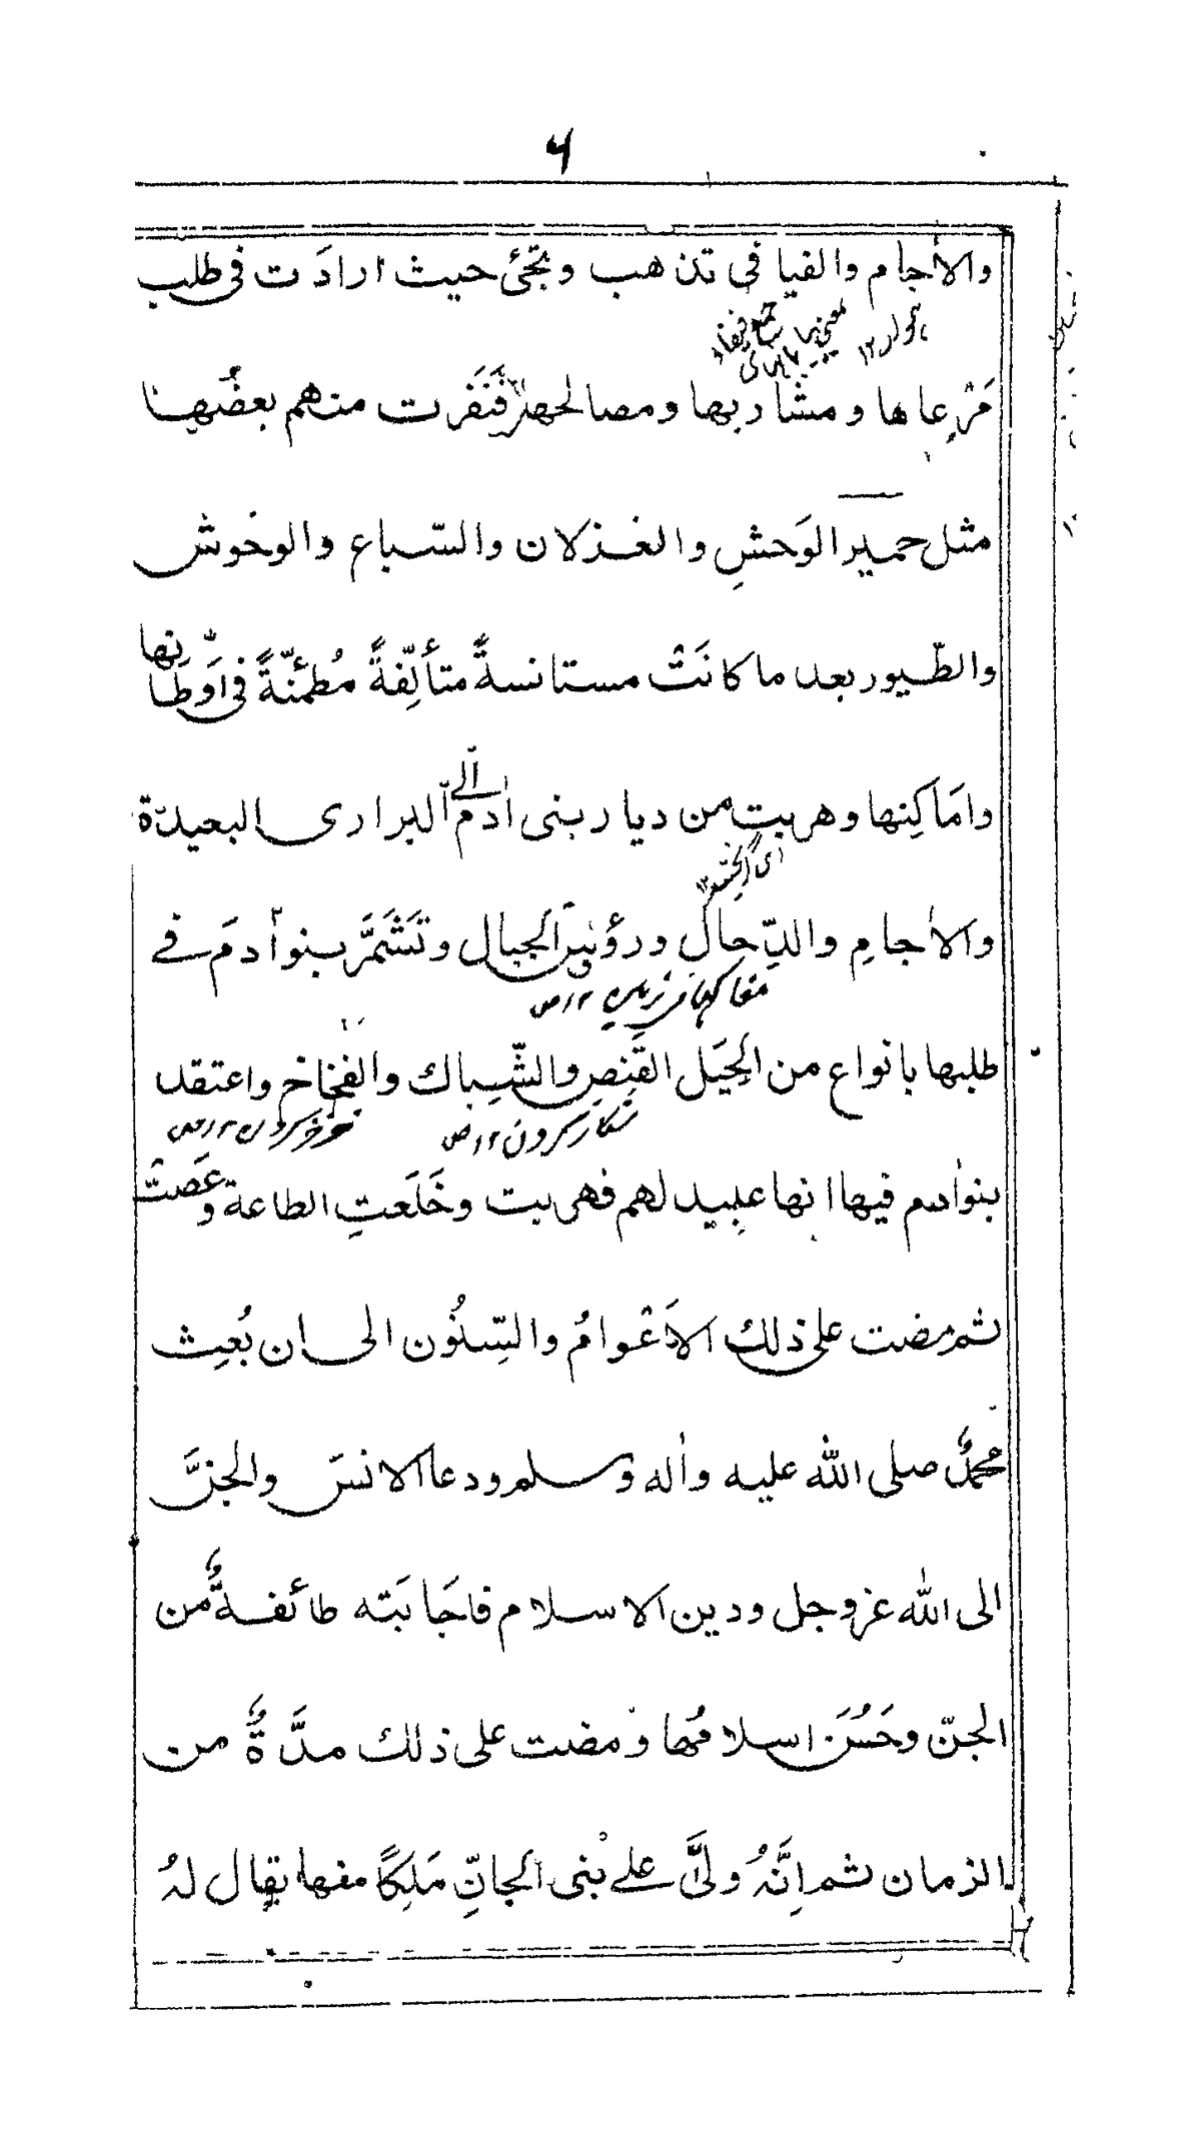 ۶
والاٰجام والفيافى تذهب وتجئ حيث ارادَت فى طلب
مَرعاها ومشاربها ومصالحها فَنَفَرت منهم بعضُها
مثل حمير الوَحشِ والغزلان والسّباع والوحوش
والطّيور بعد ما كانَتْ مستانسةً متألِّفةً مُطمئنّةً فى اَوطَانها
وامَاكِنها وهربت من ديار بنى اٰدم الى البرارى البعيدة
والاٰجامِ والدِّحال ورؤس الجبال وتَشَمَّرَ بنو اٰدمَ فے
طلبها بانواع من الحِيَل القَنِصِ والشِّباك والفِخاخ واعتقد
بنواٰدم فيها انها عبيد لهم فهربت وخَلَعتِ الطاعة وعَصَتْ
ثم مضت على ذلك الاَعْوامُ والسِّنُون الى ان بُعِث
محمدٌ صلى الله عليه واٰله وسلم ودعا الانسَ والجنَّ
الى الله عزوجل ودين الاسلام فاجَابَته طائفةٌ من
الجنّ وحَسُنَ اسلامُها ومضت على ذلك مدَّةٌ من
الزمان ثم اِنَّهُ ولىَّ علے بنى الجانِّ مَلِكًا منها يقال لهُ